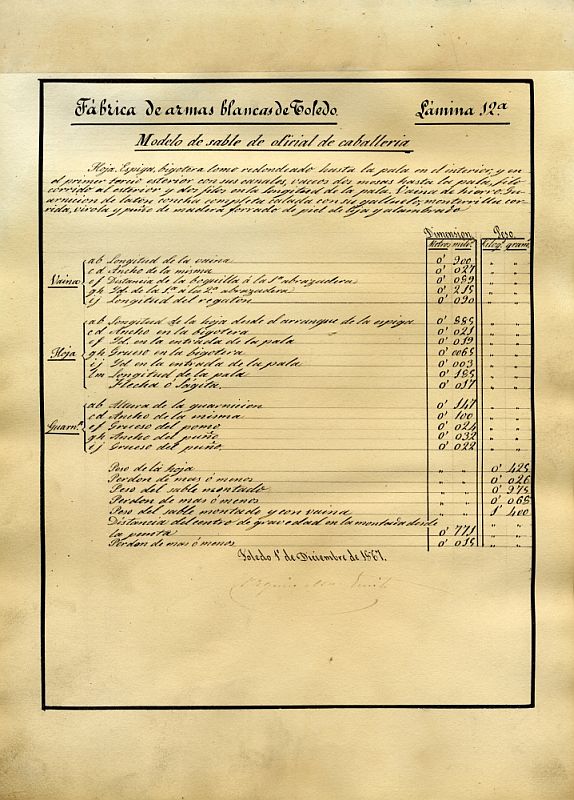 Fábrica de armas blancas de Toledo.
Lámina 12ª
Modelo de sable de oficial de caballeria
Hoja. Espiga, bigotera lomo redondeado hasta la pala en el interior, y en
el primer tercio esterior con sus canales, vaceos dos mesas hasta la pala, filo
corrido al esterior y dos filos en la longitud de la pala. Vaina de hierro. Gu-
arnicion de laton concha completa calada con su galluelo, monterilla cor-
rida, virola y puño de madera forrado de piel de lija y alambrado
Dimension Peso
Metros milₛ Kilogₛ gramₛ
Vaina
ab Longitud de la vaina 0' 900 " "
cd Ancho de la misma 0' 027 " "
ef Distancia de la boquilla á la 1ª abrazadera 0' 089 " "
gh Id. de la 1ª á la 2ª abrazadera 0' 215 " "
ij Longitud del regaton 0' 090 " "
Hoja
ab Longitud de la hoja desde el arranque de la espiga 0' 885 " "
cd Ancho en la bigotera 0' 021 " "
ef Id. en la entrada de la pala 0' 019 " "
gh Grueso en la bigotera 0' 0065 " "
ij Id en la entrada de la pala 0' 003 " "
lm Longitud de la pala 0' 185 " "
Flecha ó Ságita 0' 017 " "
Guarnⁿ
ab Altura de la guarnicion 0' 147 " "
cd Ancho de la misma 0' 100 " "
ef Grueso del pomo 0' 024 " "
gh Ancho del puño 0' 032 " "
ij Grueso del puño 0' 022 " "
Peso de la hoja " " 0' 425
Perdon de mas ó menos " " 0' 026
Peso del sable montado " " 0' 975
Perdon de mas ó menos " " 0' 065
Peso del sable montado y con vaina " " 1' 400
Distancia del centro de gravedad en la montada desde
la punta 0' 771 " "
Perdon de mas ó menos 0' 015 " "
Toledo 1º de Diciembre de 1867.